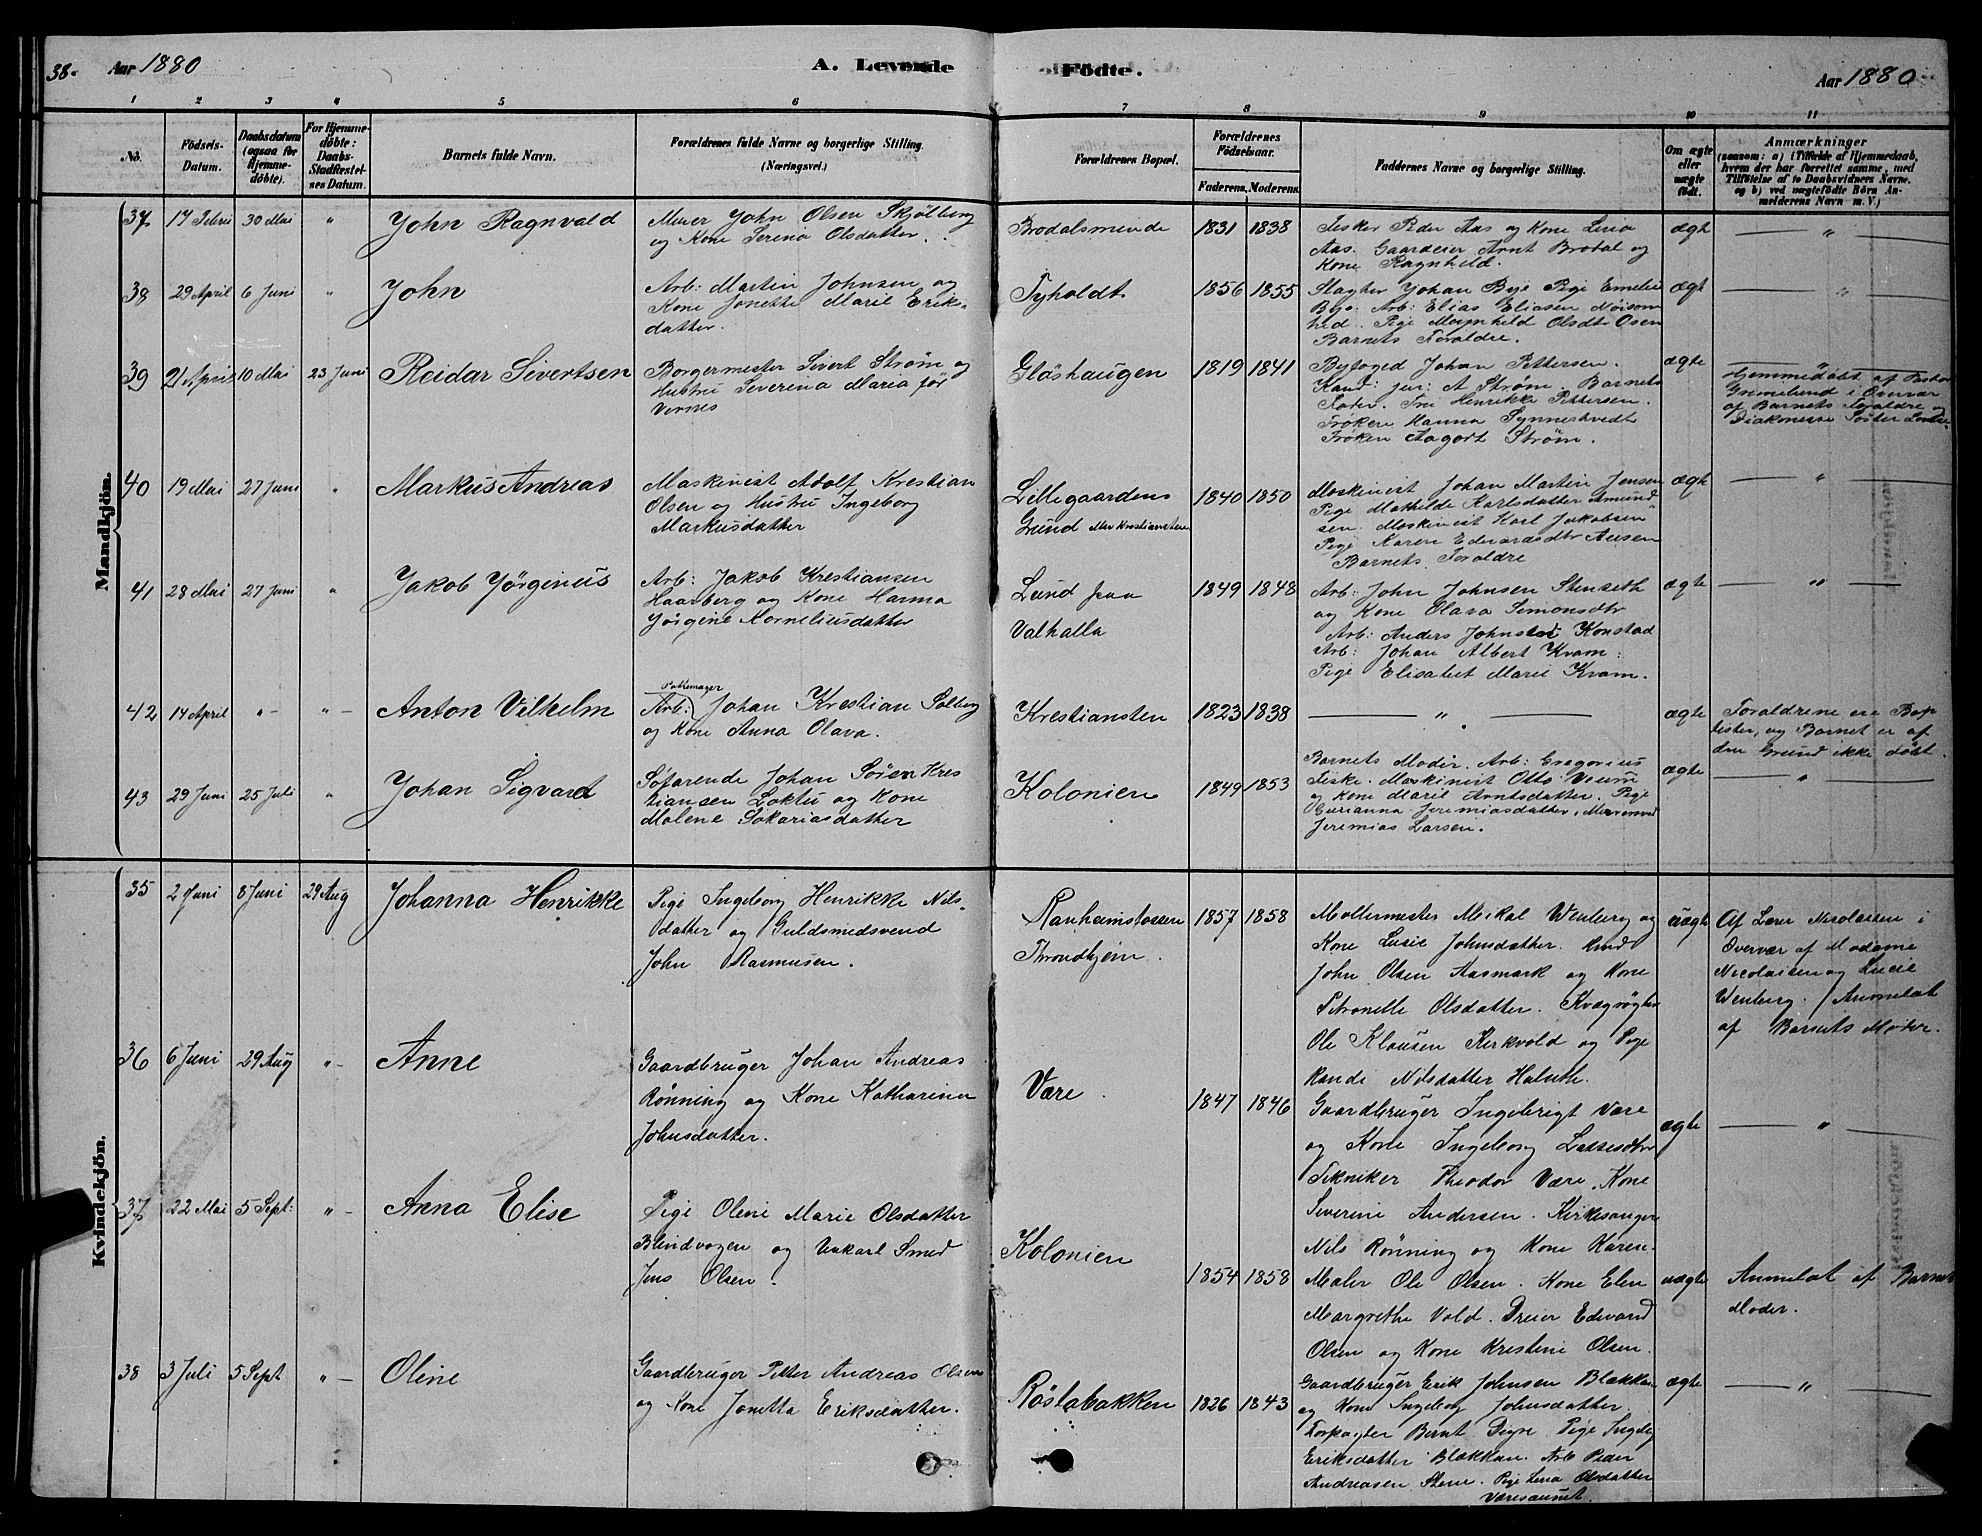 38. Aar 1880 A. Levende Födte. Aar 1880
1 2 3 4 5 6 7 8 9 10 11
No. Födsels-Datum. Daabsdatum (ogsaa for Hjemmedöbte). For Hjemmedöbte: Daabs-Stadfæstelses Datum. Barnets fulde Navn. Forældrenes fulde Navne og borgerlige Stilling. (Næringsvei.) Forældrenes Bopæl. Forældrenes Födselsaar. Faderens. Moderens. Faddernes Navne og borgerlige Stilling. Om ægte eller uægte födt. Anmærkninger (saasom: a) i Tilfælde af Hjemmedaab, hvem der har forrettet samme, med Tilföielse af to Daabsvidners Navne. og b) ved uægtefödte Börn Anmelderens Navn m. V.)
Mandkjön.
37 30 Mai " John Ragnvald
Murer John Olsen Skjölberg
og Kone Serena Olsdatter.
Brodalsminde 1831 1838
Fisker Peder Aas og Kone
Aas. Gaardeier Arnt Brodal og
Kone Ragnhild.
ægte — " —
38 29 April 6 Juni " John
Arb: Martin Johnsen og
Kone Jonette Marie Eriks-
datter.
Tyholdt 1856 1855
Slagter Johan Bye Pige Emelie
Bye. Arb: Elias Eliasen
Pige Olsdtr Osen
Barnets Foraldre.
ægte — " —
39 21 April 10 Mai 23 Juni Reidar Sivertsen
Borgermester Sivert Ström og
Hustru Severina Maria för
Vernes
Glöshaugen 1819 1841
Byfoged Johan Pettersen.
Kand: jur: A Ström. Barnets
Fader. Fru Henrikke Pettersen.
Fröken Hanna Synnestvedt
Fröken Aagot Ström.
ægte — " —
Hjemmedöbt af Pastor
i Overvær
af Barnets Foraldre og
Diakonesse Söster
40 19 Mai 27 Juni " Markus Andreas
Maskinist Adolf Krestian
Olsen og Hustru Ingeborg
Markusdatter
Lillegaardens
Grund
1840 1850
Maskinist Johan Martin Jensen
Pige Mathilde Karlsdatter Amund
sen. Maskinist Karl Jakobsen
Pige Karen Edvardsdtr
Barnets Foraldre
ægte — " —
41 28 Mai 27 Juni " Jakob Jörginus
Arb: Jakob Krestiansen
Haarberg og Kone Hanna
Jörgine Korneliusdatter
Lund paa
Valhalla
1849 1848
Arb: John Johnsen Stenseth
og Kone Olava Simonsdtr
Arb: Anders Johnsen Konstad
Arb: Johan Albert Kvam:
Pige Elisabet Marie Kvam.
ægte — " —
42 14 April "- "- Anton Vilhelm
Pottemager
Arb: Johan Krestian Solberg
og Kone Anna Olava.
Krestiansten 1823 1838 — " —
ægte
Foraldrene ere Bap
tister, og Barnet er af
den Grund ikke döbt.
43 29 Juni 25 Juli " Johan Sigvard
Söfarende Johan Sören Kres
tiansen Loktu og Kone
Malene Sakariasdatter
Kolonien 1849 1853
Barnets Moder. Arb: Gregorius
Fiske. Maskinist Otto
og Kone Marie Arntsdatter. Pige
Jeremiasdatter. Murersvend
Jeremias Larsen.
ægte — " —
Kvindekjön.
35 2 Juni 8 Juni 29 Aug Johanna Henrikke
Pige Ingeborg Henrikke Nils-
datter og Guldsmedsvend
John Rasmusen.
Ranheims
Throndhjem.
1857 1858
Möllermester Mikal Wenberg og
Kone Lusie Johnsdatter.
John Olsen Aasmark og Kone
Petronelle Olsdatter. Kvægrögter
Ole Klausen Kirkvold og Pige
Randi Nilsdatter
uægte
Af Lærer Nicolaisen i
Overvær af Madame
Nicolaisen og Lucie
Wenberg. / Anmeldt
af Barnets Moder.
36 6 Juni 29 Aug "- Anne
Gaardbruger Johan Andreas
Rönning og Kone Katharina
Johnsdatter.
Være. 1847 1846
Gaardbruger Ingebrigt Være
og Kone Ingeborg Lassesdtr
Tekniker Theodor Være. Kone
Severine Andersen. Kirkesanger
Nils Rönning og Kone Karen.
ægte — " —
37 22 Mai 5 Sept: "- Anna Elise
Pige Oline Marie Olsdatter
Blindvogen og Smed
Jens Olsen.
Kolonien
1854 1858
Maler Ole Olsen. Kone Elen
Margrethe Vold. Dreier Edvard
Olsen og Kone Kristine Olsen.
uægte
Anmeldt af Barnets
Moder.
38 3 Juli 5 Sept "- Oline
Gaardbruger Petter Andreas Olsen
og Kone Jonetta Eriksdatter.
Röstabakken 1826 1843
Gaardbruger Erik Johnsen Blækkan
og Kone Ingeborg Johnsdatter.
Forpagter Bernt Digre. Pige Ingeborg
Eriksdatter Blækkan. Arb Peder
Andreasen Stene. Pige Lena Olsdatter
Væresaunet.
ægte — " —